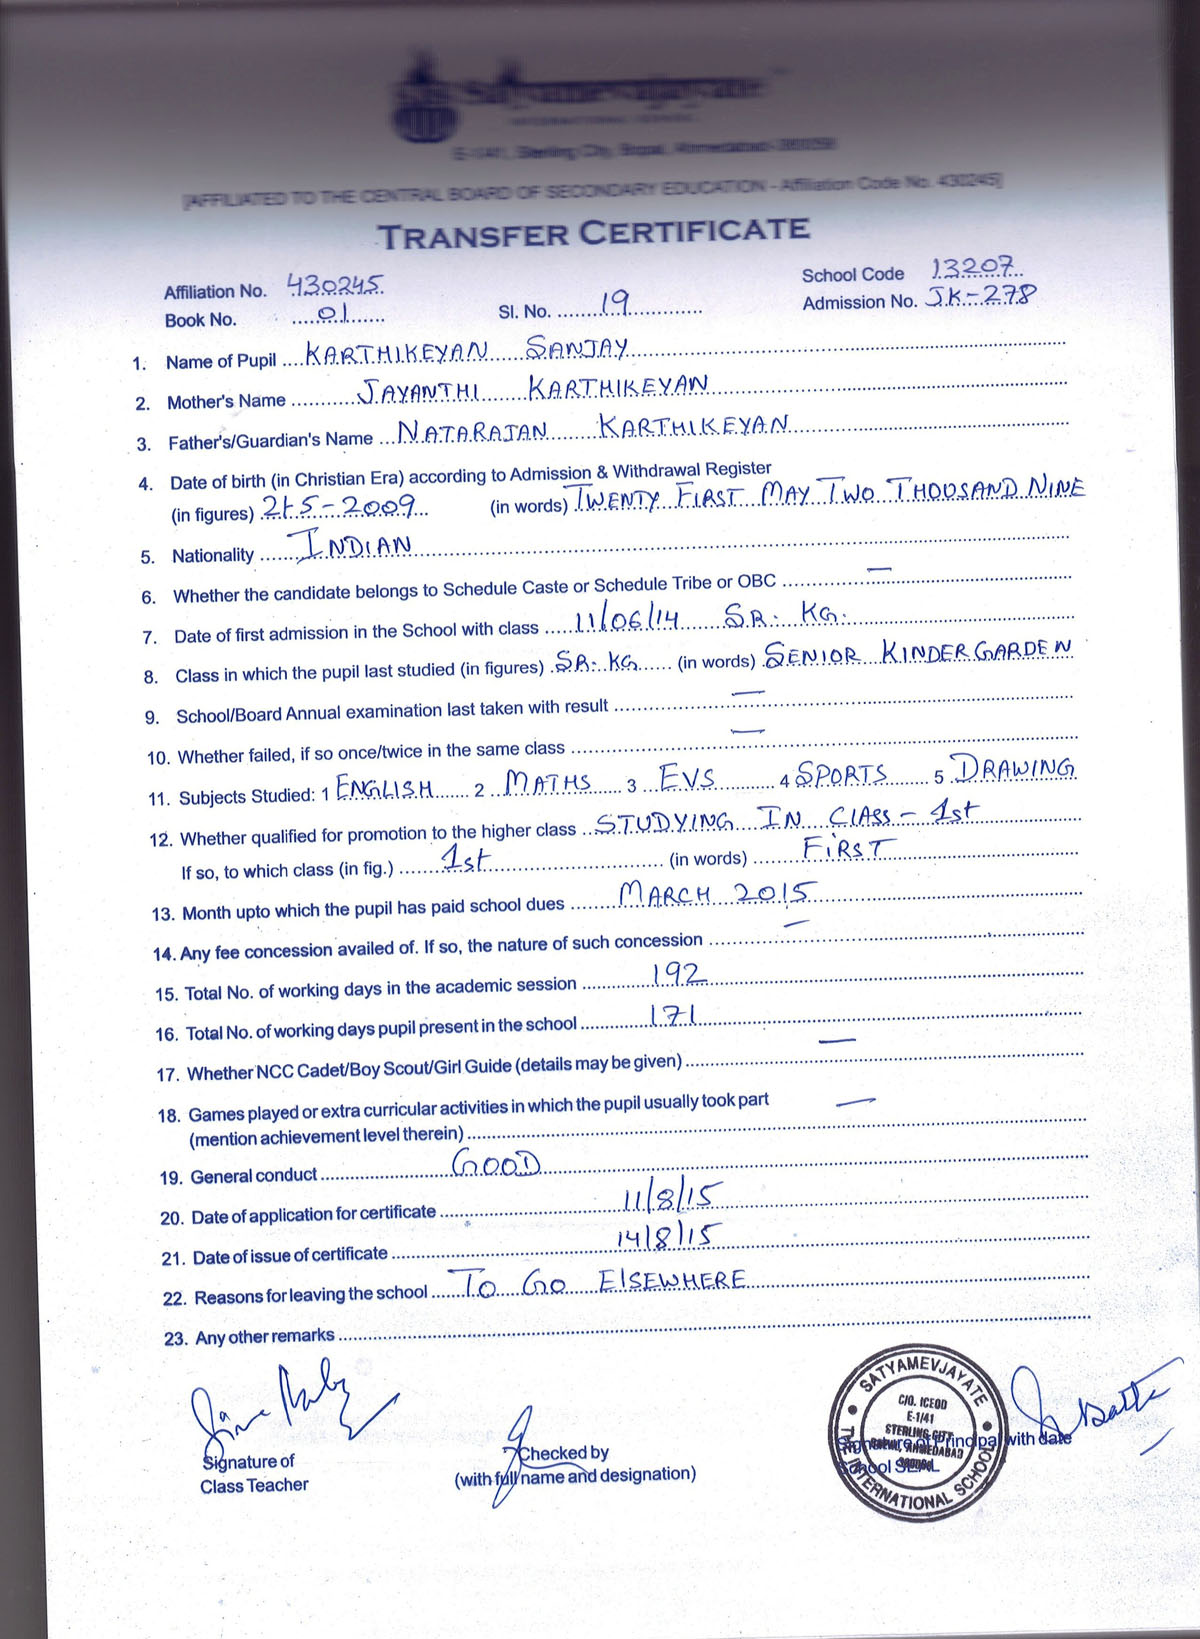 Satyamevajayate
INTERNATIONAL SCHOOL
E-1/41, Sterling City, Bopal, Ahmedabad-380058
[AFFILIATED TO THE CENTRAL BOARD OF SECONDARY EDUCATION - Affiliation Code No. 430245]
TRANSFER CERTIFICATE
Affiliation No. 430245 School Code 13207
Book No. 01 Sl. No. 19 Admission No. JK-278
1. Name of Pupil KARTHIKEYAN SANJAY
2. Mother's Name JAYANTHI KARTHIKEYAN
3. Father's/Guardian's Name NATARAJAN KARTHIKEYAN
4. Date of birth (in Christian Era) according to Admission & Withdrawal Register
(in figures) 21-5-2009 (in words) TWENTY FIRST MAY TWO THOUSAND NINE
5. Nationality INDIAN
6. Whether the candidate belongs to Schedule Caste or Schedule Tribe or OBC —
7. Date of first admission in the School with class 11/06/14 SR. KG.
8. Class in which the pupil last studied (in figures) SR. KG (in words) SENIOR KINDERGARDEN
9. School/Board Annual examination last taken with result —
10. Whether failed, if so once/twice in the same class —
11. Subjects Studied: 1 ENGLISH 2 MATHS 3 EVS 4 SPORTS 5 DRAWING
12. Whether qualified for promotion to the higher class STUDYING IN ClASS - 1st
If so, to which class (in fig.) 1st (in words) FiRST
13. Month upto which the pupil has paid school dues MARCH 2015
14. Any fee concession availed of. If so, the nature of such concession —
15. Total No. of working days in the academic session 192
16. Total No. of working days pupil present in the school 171
17. Whether NCC Cadet/Boy Scout/Girl Guide (details may be given) —
18. Games played or extra curricular activities in which the pupil usually took part —
(mention achievement level therein)
19. General conduct GOOD
20. Date of application for certificate 11/8/15
21. Date of issue of certificate 14/8/15
22. Reasons for leaving the school TO GO ElSEWHERE
23. Any other remarks
SATYAMEVJAYATE
THE INTERNATIONAL SCHOOL
C/O. ICEOD
E-1/41
STERLING CITY
BOPAL, AHMEDABAD
Signature of
Class Teacher
Checked by
(with full name and designation)
Signature of Principal with date
School SEAL